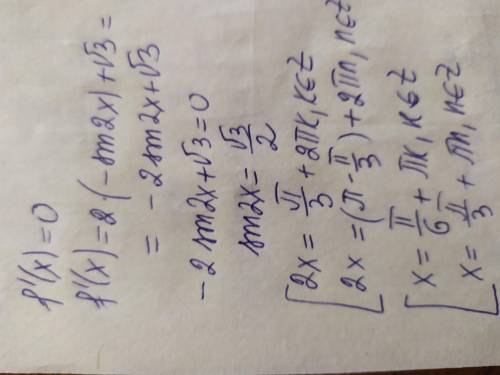 f'(x)=0
f'(x)=2·(-sin2x)+√3=
=-2sin2x+√3
-2sin2x+√3=0
sin2x=√3/2
[2x=π/3+2πk, k∈Z
2x=(π-π/3)+2πn, n∈Z
[x=π/6+πk, k∈Z
x=π/3+πn, n∈Z